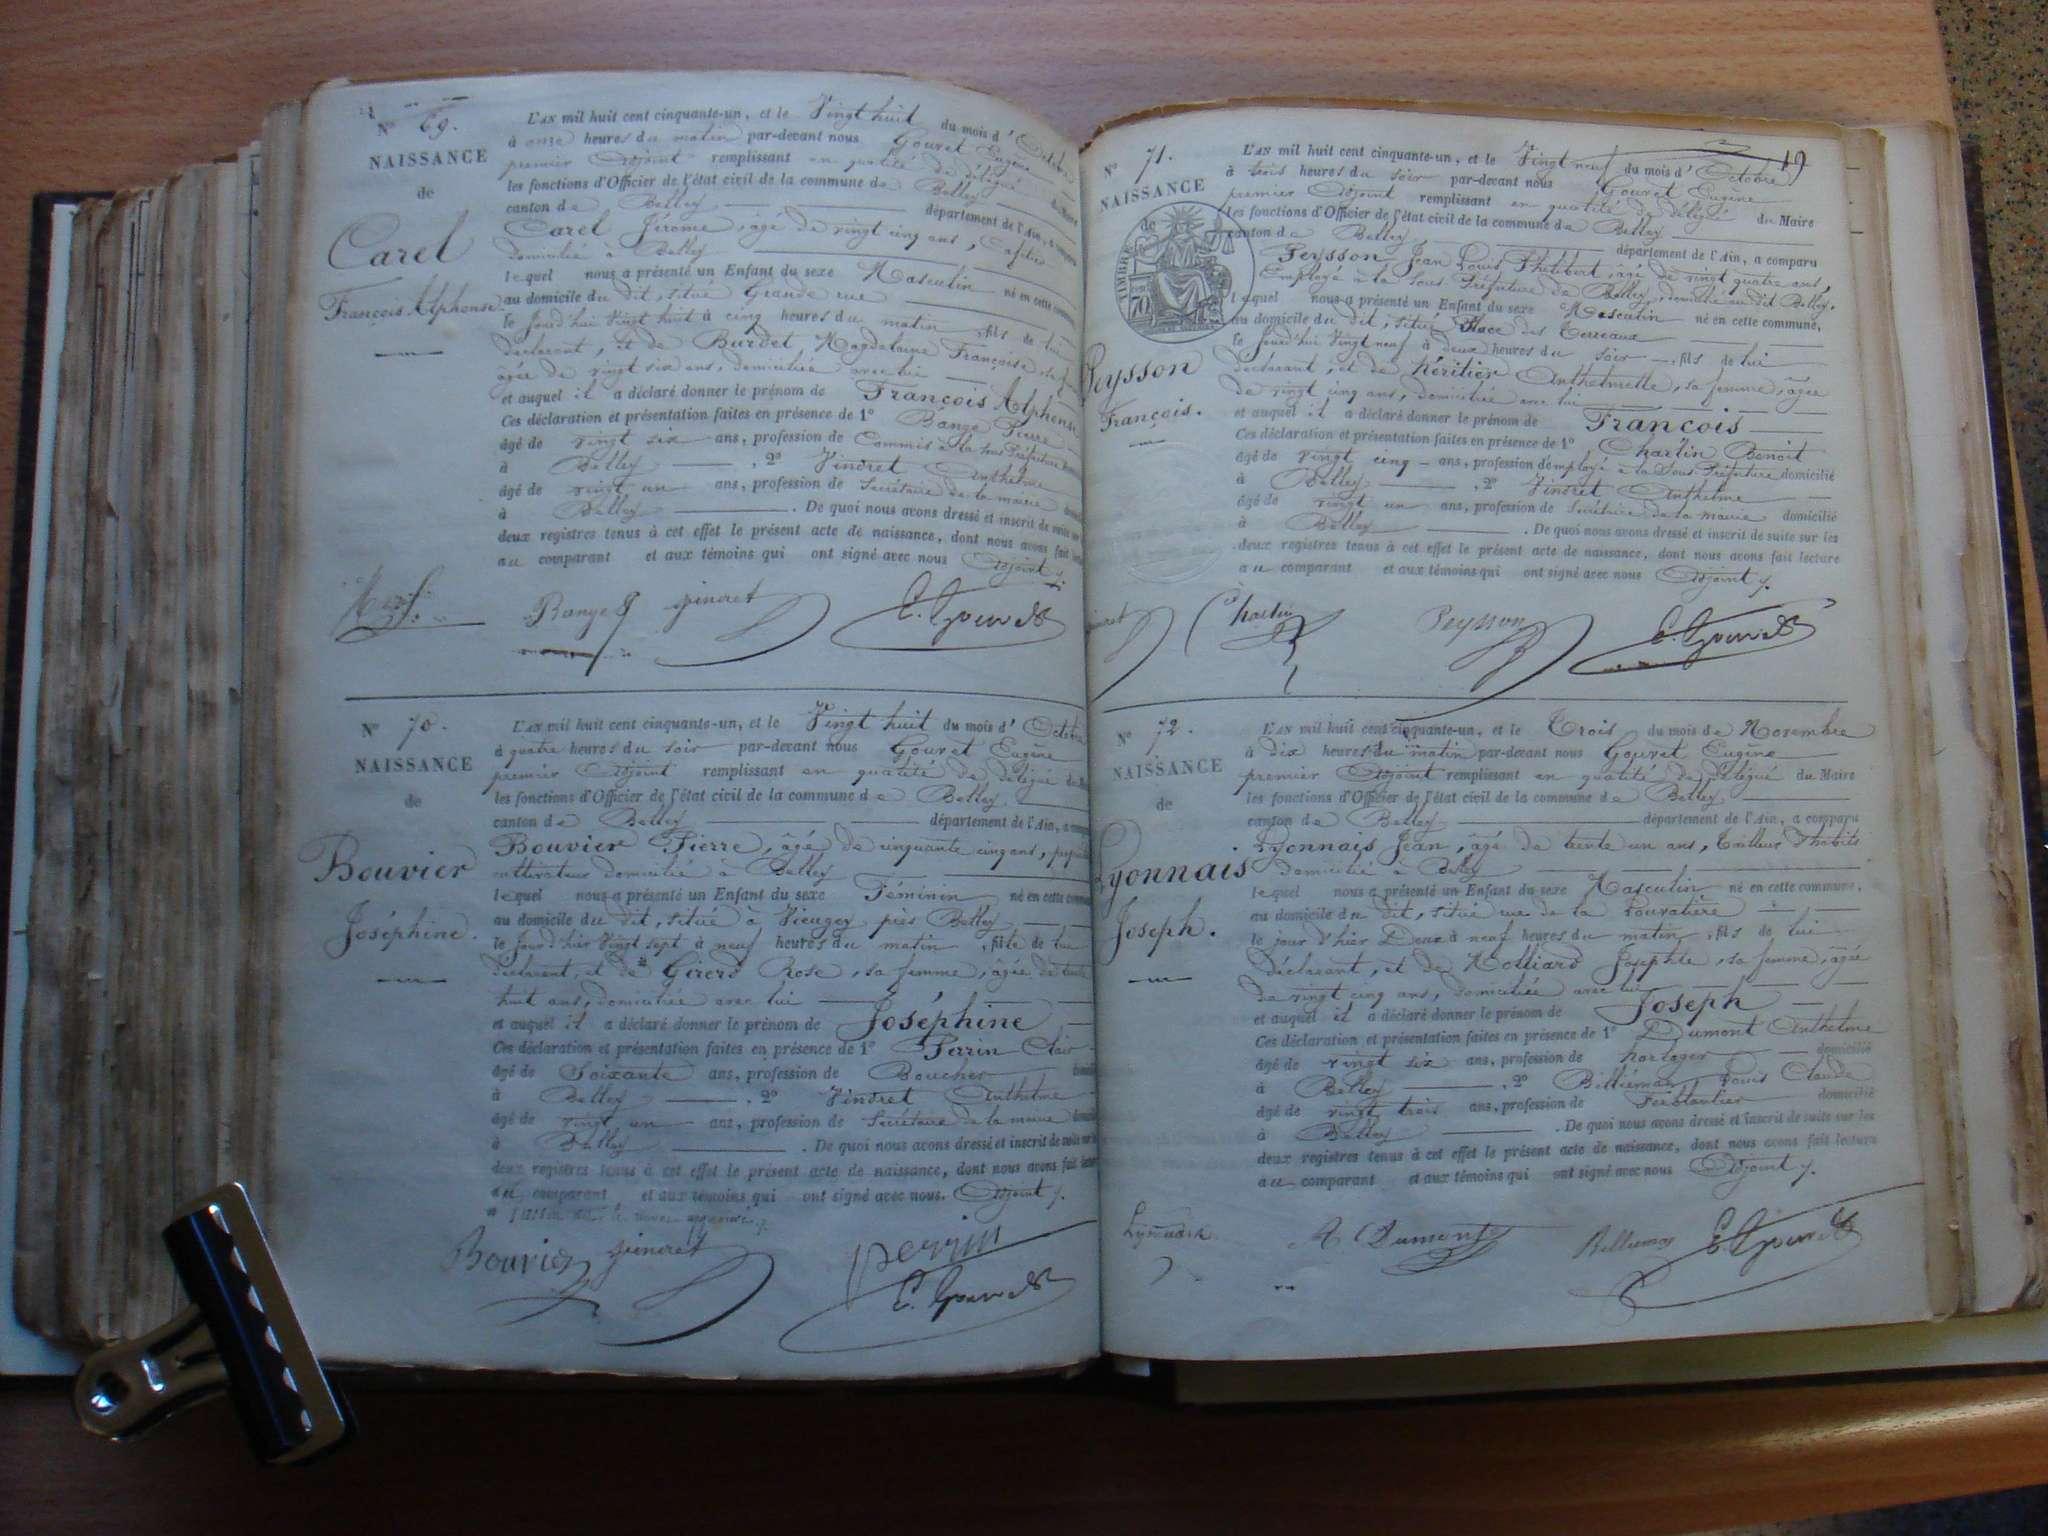 N° 69.
NAISSANCE
de
Carel
François Alphonse
L'AN mil huit cent cinquante-un, et le Vingt huit du mois d'Octobre
à onze heures du matin par-devant nous Gouvet Eugène
premier Adjoint remplissant en qualité de délégué du Maire
les fonctions d'Officier de l'état civil de la commune de Belley
canton de Belley département de l'Ain, a comparu
Carel Jérome, âgé de vingt cinq ans,
domicilié à Belley
lequel nous a présenté un Enfant du sexe Masculin né en cette commune,
au domicile du dit, situé Grande rue
le jourd'hui vingt huit à cinq heures du matin, fils de lui
déclarant, et de Burdet Magdelaine Françoise, sa femme
âgée de vingt six ans, domiciliée avec lui
et auquel il a déclaré donner le prénom de François Alphonse
Ces déclaration et présentation faites en présence de 1° Bange Pierre
âgé de vingt six ans, profession de Commis à la Sous Préfecture
à Belley, 2° Vindret Anthelme
âgé de vingt un ans, profession de Secrétaire de la mairie
à Belley. De quoi nous avons dressé et inscrit de suite sur
deux registres tenus à cet effet le présent acte de naissance, dont nous avons fait lecture
au comparant et aux témoins qui ont signé avec nous Adjoint
Bange vindret E. Gouvet
N° 70.
NAISSANCE
de
Bouvier
Joséphine.
L'AN mil huit cent cinquante-un, et le Vingt huit du mois d'Octobre
à quatre heures du soir par-devant nous Gouvet Eugène
premier Adjoint remplissant en qualité de délégué du Maire
les fonctions d'Officier de l'état civil de la commune de Belley
canton de Belley département de l'Ain, a comparu
Bouvier Pierre, âgé de cinquante cinq ans,
cultivateur domicilié à Belley
lequel nous a présenté un Enfant du sexe Féminin né en cette commune
au domicile du dit, situé à Vieugey près Belley
le jourd'hier Vingt sept à neuf heures du matin, fille de lui
déclarant, et de Girerd Rose, sa femme, âgée de trente
huit ans, domiciliée avec lui
et auquel il a déclaré donner le prénom de Joséphine
Ces déclaration et présentation faites en présence de 1° Perrin Clair
âgé de Soixante ans, profession de Boucher
à Belley, 2° Vindret Anthelme
âgé de vingt un ans, profession de Secrétaire de la mairie
à Belley. De quoi nous avons dressé et inscrit de suite sur les
deux registres tenus à cet effet le présent acte de naissance, dont nous avons fait lecture
au comparant et aux témoins qui ont signé avec nous. Adjoint
Bouvier vindret perrin
E. Gouvet
19
N° 71.
NAISSANCE
de
TIMBRE
70
Peysson
François.
L'AN mil huit cent cinquante-un, et le Vingt neuf du mois d'Octobre
à trois heures du soir par-devant nous Gouvet Eugène
premier Adjoint remplissant en qualité de délégué du Maire
les fonctions d'Officier de l'état civil de la commune de Belley
canton de Belley département de l'Ain, a comparu
Peysson Jean Louis Philibert, âgé de vingt quatre ans,
Employé à la Sous Préfecture de Belley, domicilié au dit Belley.
lequel nous a présenté un Enfant du sexe Masculin né en cette commune,
au domicile du dit, situé Place des Terreaux
le jourd'hui Vingt neuf à deux heures du soir, fils de lui
déclarant, et de Héritier Anthelmette, sa femme, âgée
de vingt cinq ans, domiciliée avec lui
et auquel il a déclaré donner le prénom de François
Ces déclaration et présentation faites en présence de 1° Charlin Benoit
âgé de vingt cinq ans, profession d'employé à la Sous Préfecture domicilié
à Belley, 2° Vindret Anthelme
âgé de vingt un ans, profession de Secrétaire de la mairie domicilié
à Belley. De quoi nous avons dressé et inscrit de suite sur les
deux registres tenus à cet effet le présent acte de naissance, dont nous avons fait lecture
au comparant et aux témoins qui ont signé avec nous Adjoint
vindret Charlin Peysson E. Gouvet
N° 72.
NAISSANCE
de
Lyonnais
Joseph.
L'AN mil huit cent cinquante-un, et le Trois du mois de Novembre
à dix heures du matin par-devant nous Gouvet Eugène
premier Adjoint remplissant en qualité de délégué du Maire
les fonctions d'Officier de l'état civil de la commune de Belley
canton de Belley département de l'Ain, a comparu
Lyonnais Jean, âgé de trente un ans, Tailleur d'habits
domicilié à Belley
lequel nous a présenté un Enfant du sexe Masculin né en cette commune,
au domicile du dit, situé rue de la Louvatière
le jour d'hier Deux à neuf heures du matin, fils de lui
déclarant, et de Molliard Josephte, sa femme, âgée
de vingt cinq ans, domiciliée avec lui
et auquel il a déclaré donner le prénom de Joseph
Ces déclaration et présentation faites en présence de 1° Dumont Anthelme
âgé de vingt six ans, profession de horloger domicilié
à Belley, 2° Billiemaz Louis Claude
âgé de vingt trois ans, profession de Ferblantier domicilié
à Belley. De quoi nous avons dressé et inscrit de suite sur les
deux registres tenus à cet effet le présent acte de naissance, dont nous avons fait lecture
au comparant et aux témoins qui ont signé avec nous Adjoint
A Dumont Billiemaz E. Gouvet